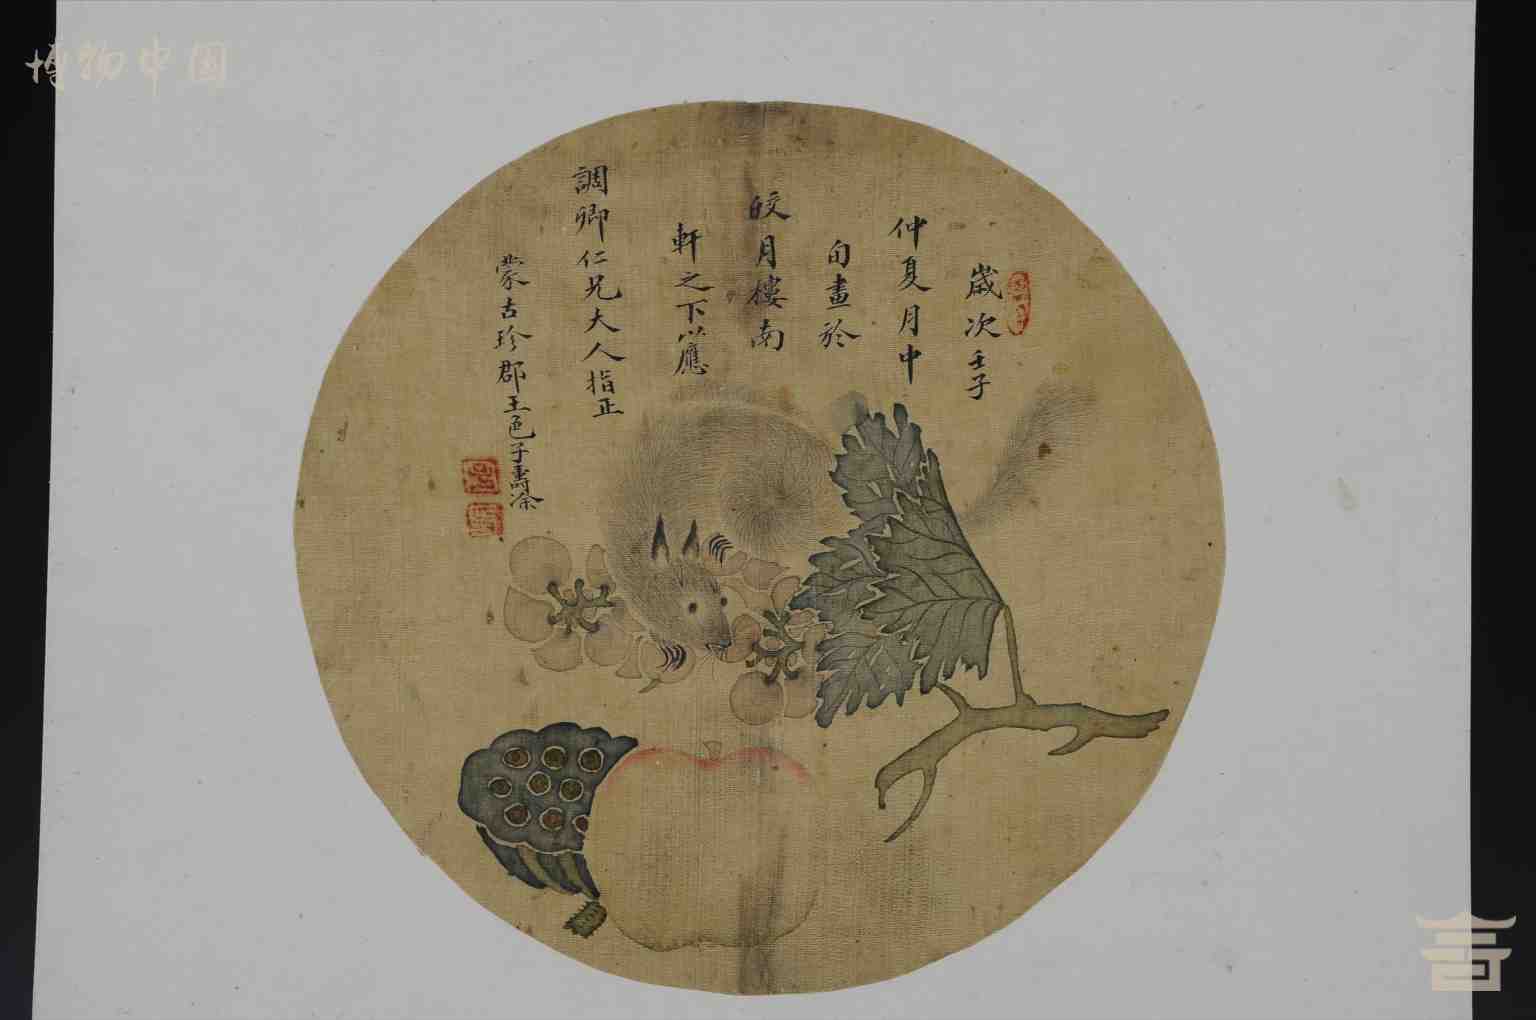 博物中国
歲次壬子
仲夏月中
旬畫於
皎月樓南
軒之下以應
調卿仁兄大人指正
蒙古珍郡王色子壽涂